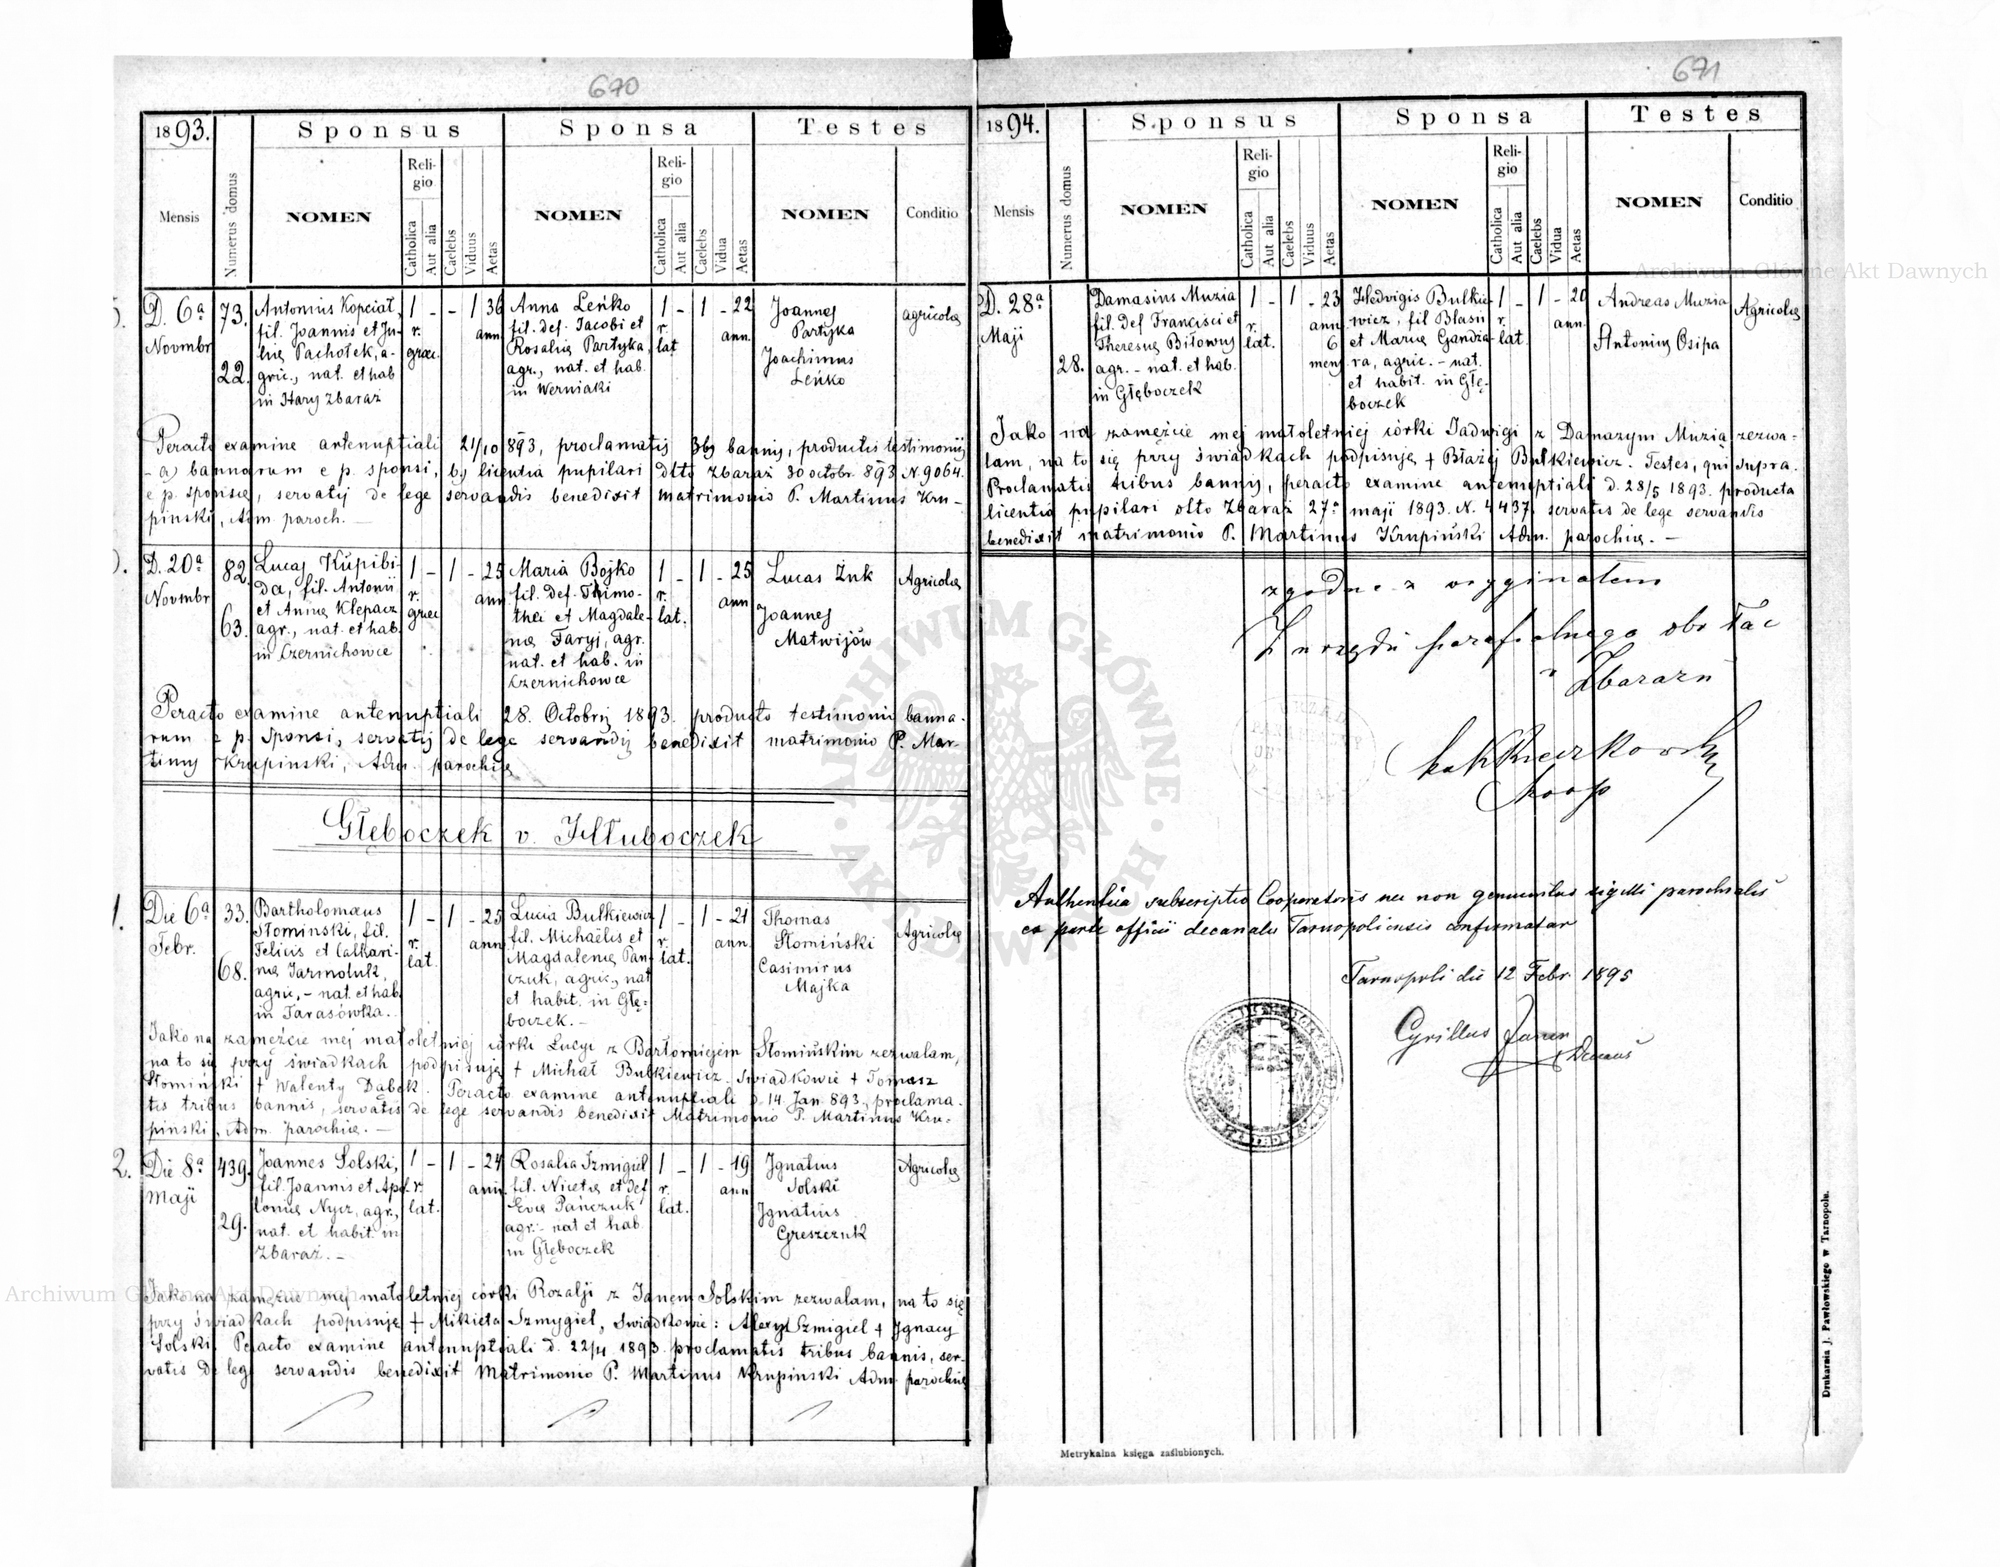 670
1893.
Sponsus
Sponsa
Testes
Mensis
Numerus domus
NOMEN
Religio
Catholica
Aut alia
Caelebs
Viduus
Aetas
NOMEN
Religio
Catholica
Aut alia
Caelebs
Vidua
Aetas
NOMEN
Conditio
D. 6a
Novmbr
73.
22.
Antonius Kopciał,
fil. Joannis et Ju-
liæ Pachołek, a-
gric., nat. et hab
in Stary Zbaraż
1 - - 1 36
r. ann.
græc.
Anna Leńko
fil. def. Jacobi et
Rosaliæ Partyka,
agr., nat. et hab.
in Werniaki
1 - 1 - 22
r. ann.
lat
Joannes
Partyka
Joachimus
Leńko
agricolæ
Peracto examine antenuptiali 21/10 893, proclamatis 3bg bannis, productis testimoniis
- a) bannorum e p. sponsi, b) licentia pupilari dtto Zbaraż 30 octobr. 893 N. 9064.
e p. sponsæ, servatis de lege servandis benedixit matrimonio P. Martinus Kru-
pinski, Adm. paroch. —
D. 20a
Novmbr
82.
63.
Lucas Kupibi-
da, fil. Antonii
et Annæ Klepacz
agr., nat. et hab.
in Czernichowce
1 - 1 - 25
r. ann.
græc
Maria Bojko
fil. def. Thimo-
thei et Magdale-
næ Faryj, agr.
nat. et hab. in
Czernichowce
1 - 1 - 25
r. ann
lat.
Lucas Żuk
Joannes
Matwijów
Agricolæ
Peracto examine antenuptiali 28. Octobris 1893. producto testimonio banno-
rum e p. Sponsi, servatis de lege servandis benedixit matrimonio P. Mar-
tinus Krupinski, Adm. parochiæ
Głęboczek v. Hłuboczek
1.
Die 6a
Febr.
33.
68.
Bartholomæus
Słominski, fil.
Felicis et Cathari-
næ Jarmoluk,
agric., - nat. et hab.
in Tarasówka.
1 - 1 - 25
r. ann
lat.
Lucia Bułkiewicz
fil. Michaëlis et
Magdalenæ Pan-
czuk, agric., nat
et habit. in Głę-
boczek. -
1 - 1 - 21
r. ann.
lat.
Thomas
Słomiński
Casimirus
Majka
Agricolæ
Jako na zamęźcie mej małoletniej córki Lucyi z Bartłomiejem Słomińskim zezwalam,
na to się przy świadkach podpisuję + Michał Bułkiewicz. Świadkowie + Tomasz
Słomiński + Walenty Dąbek. Peracto examine antenuptiali d. 14 Jan 893, proclama-
tis tribus bannis, servatis de lege servandis benedixit Matrimonio P. Martinus Kru-
pinski, Adm. parochiæ. —
2.
Die 8a
Maji
439.
29.
Joannes Solski,
fil. Joannis et Apol-
loniæ Nycz, agr.,
nat. et habit. in
Zbaraż. -
1 - 1 - 24
r. ann.
lat.
Rosalia Szmigiel
fil. Nicetæ et def
Evæ Pańczuk
agr. - nat et hab
in Głęboczek
1 - 1 - 19
r. ann
lat.
Ignatius
Solski
Ignatius
Greszczuk
Agricolæ
Jako na zamęźcie mej małoletniej córki Rozalji z Janem Solskim zezwalam, na to się
przy świadkach podpisuję + Mikieta Szmygiel, Świadkowie: Alexy Szmigiel + Ignacy
Solski. Peracto examine antenuptiali d. 22/4 1893. proclamatis tribus bannis, ser-
vatis de lege servandis benedixit Matrimonio P. Martinus Krupinski Adm. parochiæ
671
1894.
Sponsus
Sponsa
Testes
Mensis
Numerus domus
NOMEN
Religio
Catholica
Aut alia
Caelebs
Viduus
Aetas
NOMEN
Religio
Catholica
Aut alia
Caelebs
Vidua
Aetas
NOMEN
Conditio
D. 28a
Maji
28.
Damasius Muzia
fil. Def Francisci et
Theresiæ Biłowus
agr. - nat. et hab.
in Głęboczek
1 - 1 - 23
r. ann
lat. 6
mens
Hedvigis Bulkie-
wicz, fil Blasii
et Mariæ Gandza-
ra, agric. - nat.
et habit. in Głę-
boczek
1 - 1 - 20
r. ann.
lat.
Andreas Muzia
Antonius Osipa
Agricolæ
Jako na zamęźcie mej małoletniej córki Jadwigi z Damazym Muzią zezwa-
lam, na to się przy świadkach podpisuję + Błażej Bułkiewicz. Testes, qui supra.
Proclamatis tribus bannis, peracto examine antenuptiali d. 28/5 1893. producta
licentia pupilari dtto Zbaraż 27a maji 1893. N. 4437. servatis de lege servandis
benedixit matrimonio P. Martinus Krupiński Adm. parochiæ. —
zgodne z orygginałem
Z urzędu parafialnego obr łac
w Zbarażu
koop
Authentica subscriptio Cooperatoris nec non genuinitas sigilli parochialis
ex parte officii decanalis Tarnopoliensis confirmatur
Tarnopoli die 12 Febr. 1895
Cyrillus
Decanus
Metrykalna księga zaślubionych.
Drukarnia J. Pawłowskiego w Tarnopolu.
Archiwum Główne Akt Dawnych
Archiwum Główne Akt Dawnych
ARCHIWUM GŁÓWNE AKT DAWNYCH